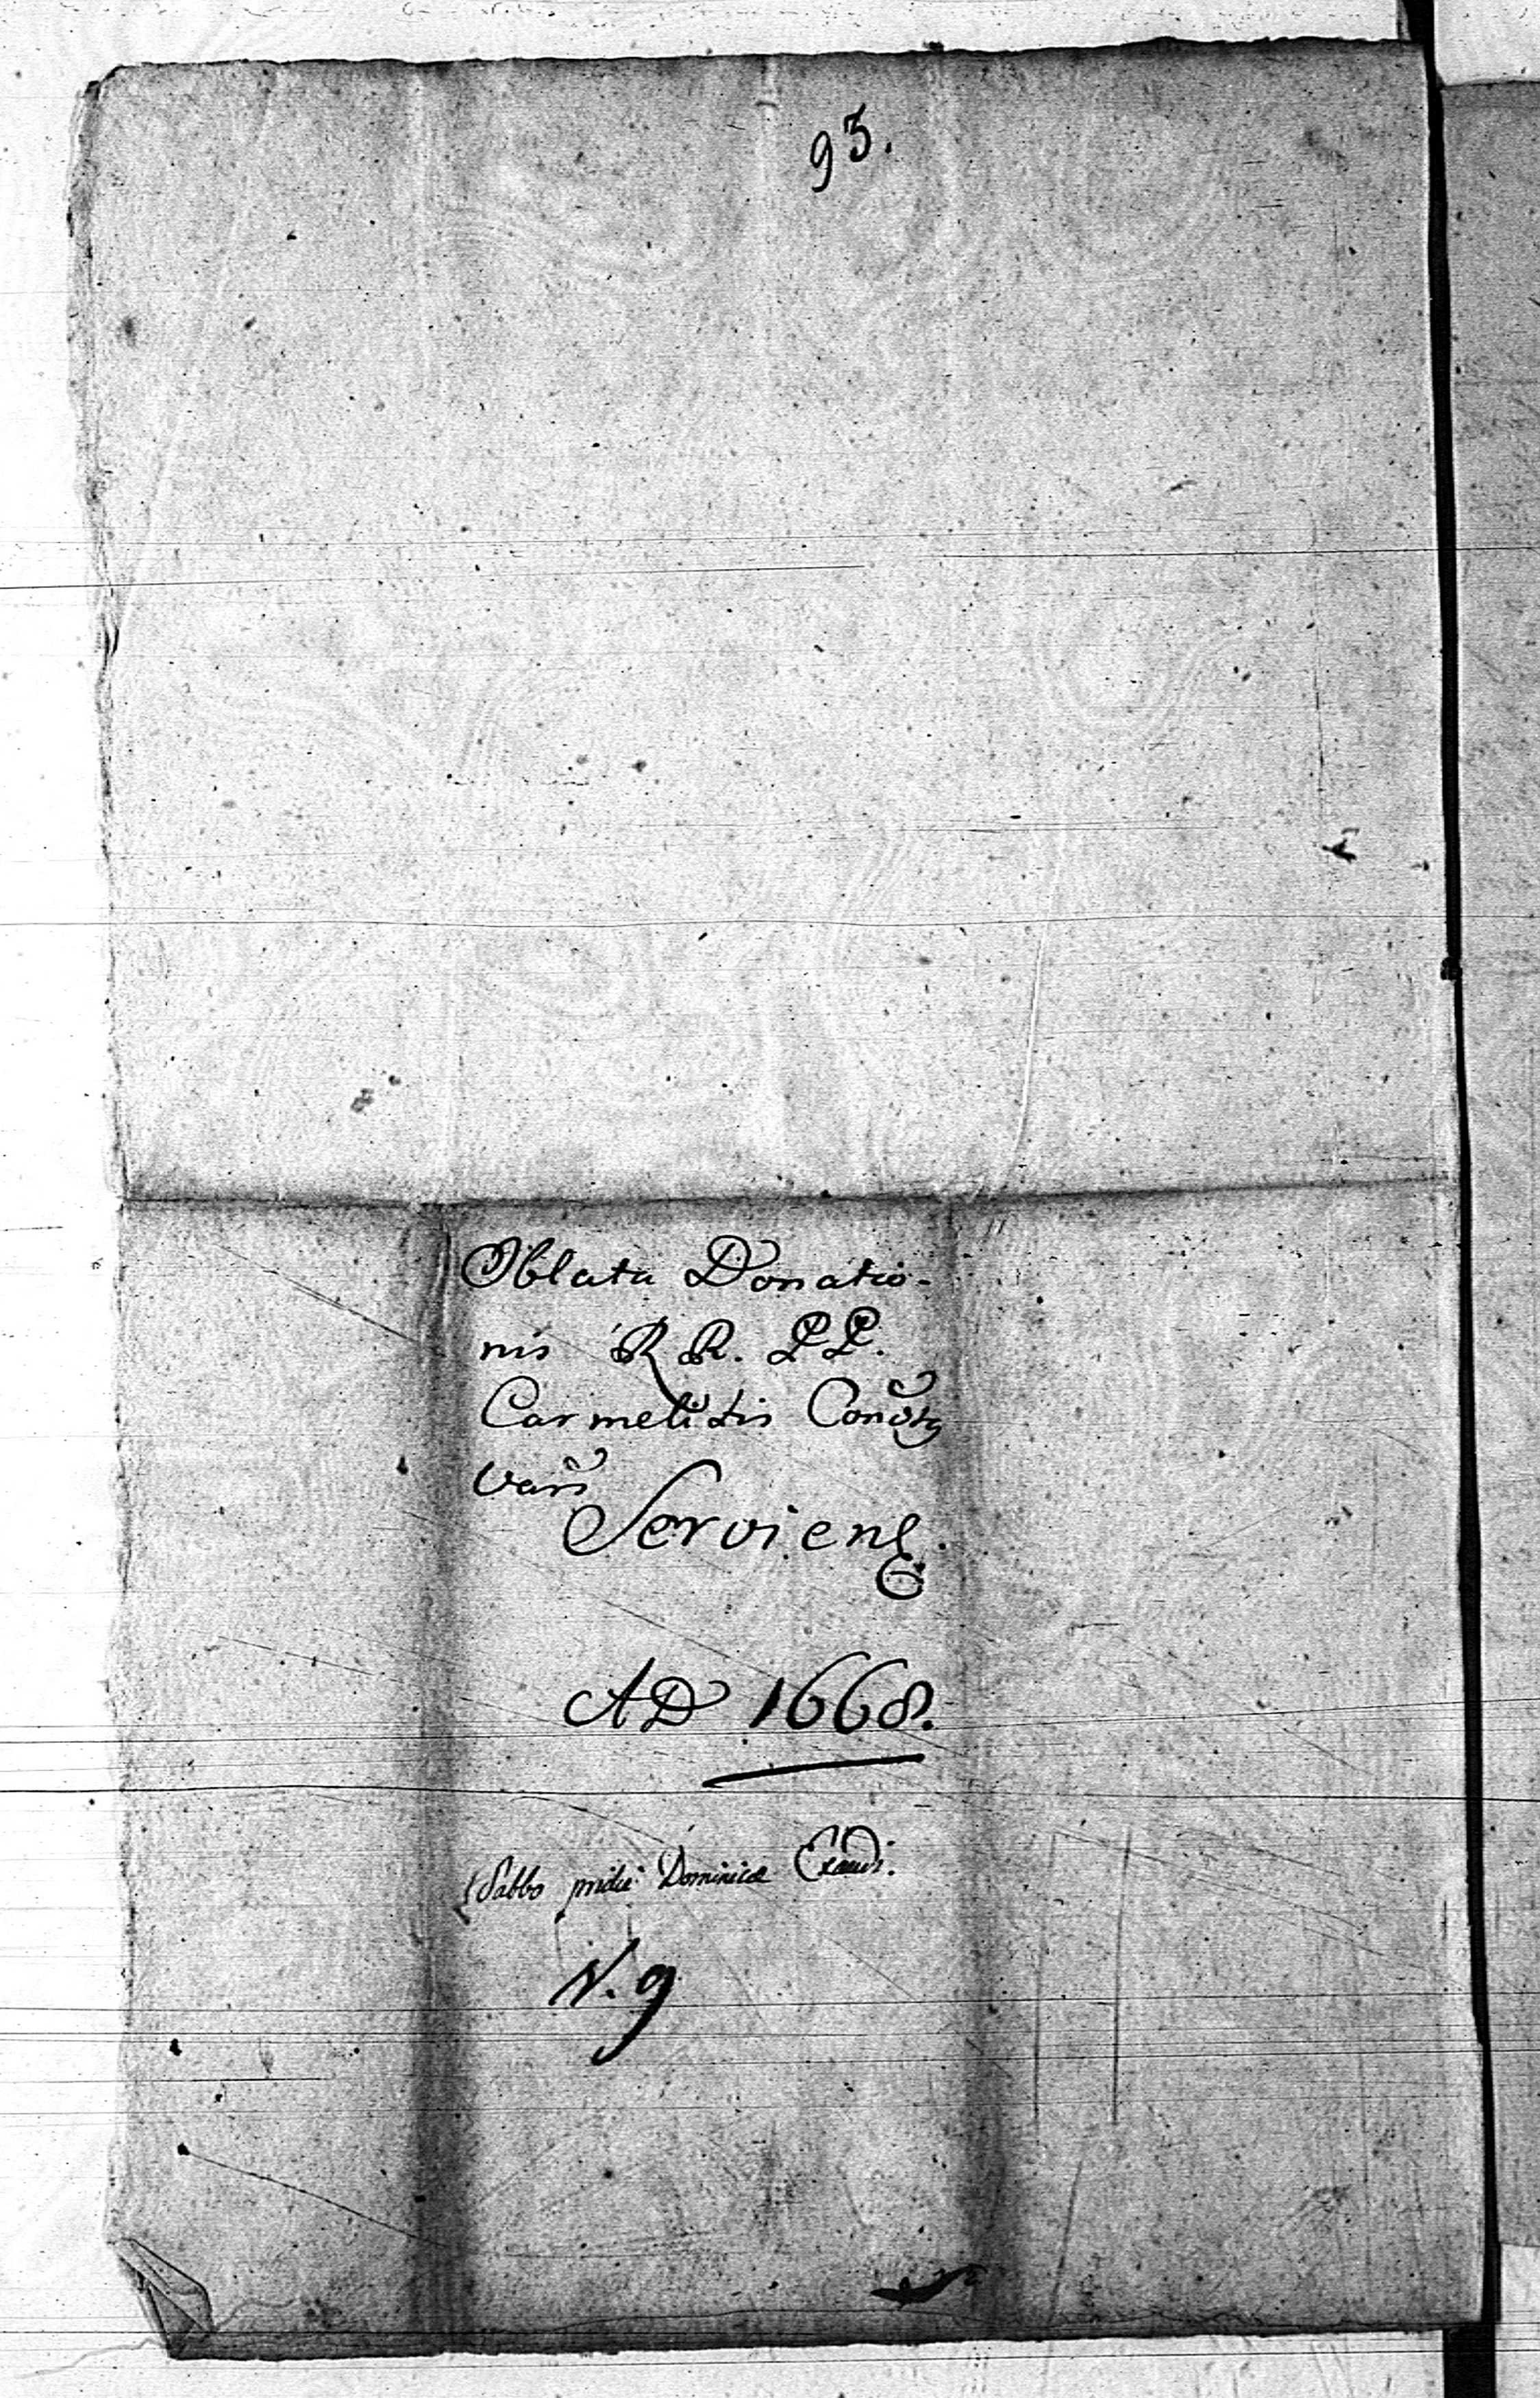 93.
Oblata Donatio-
nis RR. PP.
Carmelitis
Vars
Serviens.
AD 1668.
Sabbo pridie Dominicæ Exaudi.
N. 9